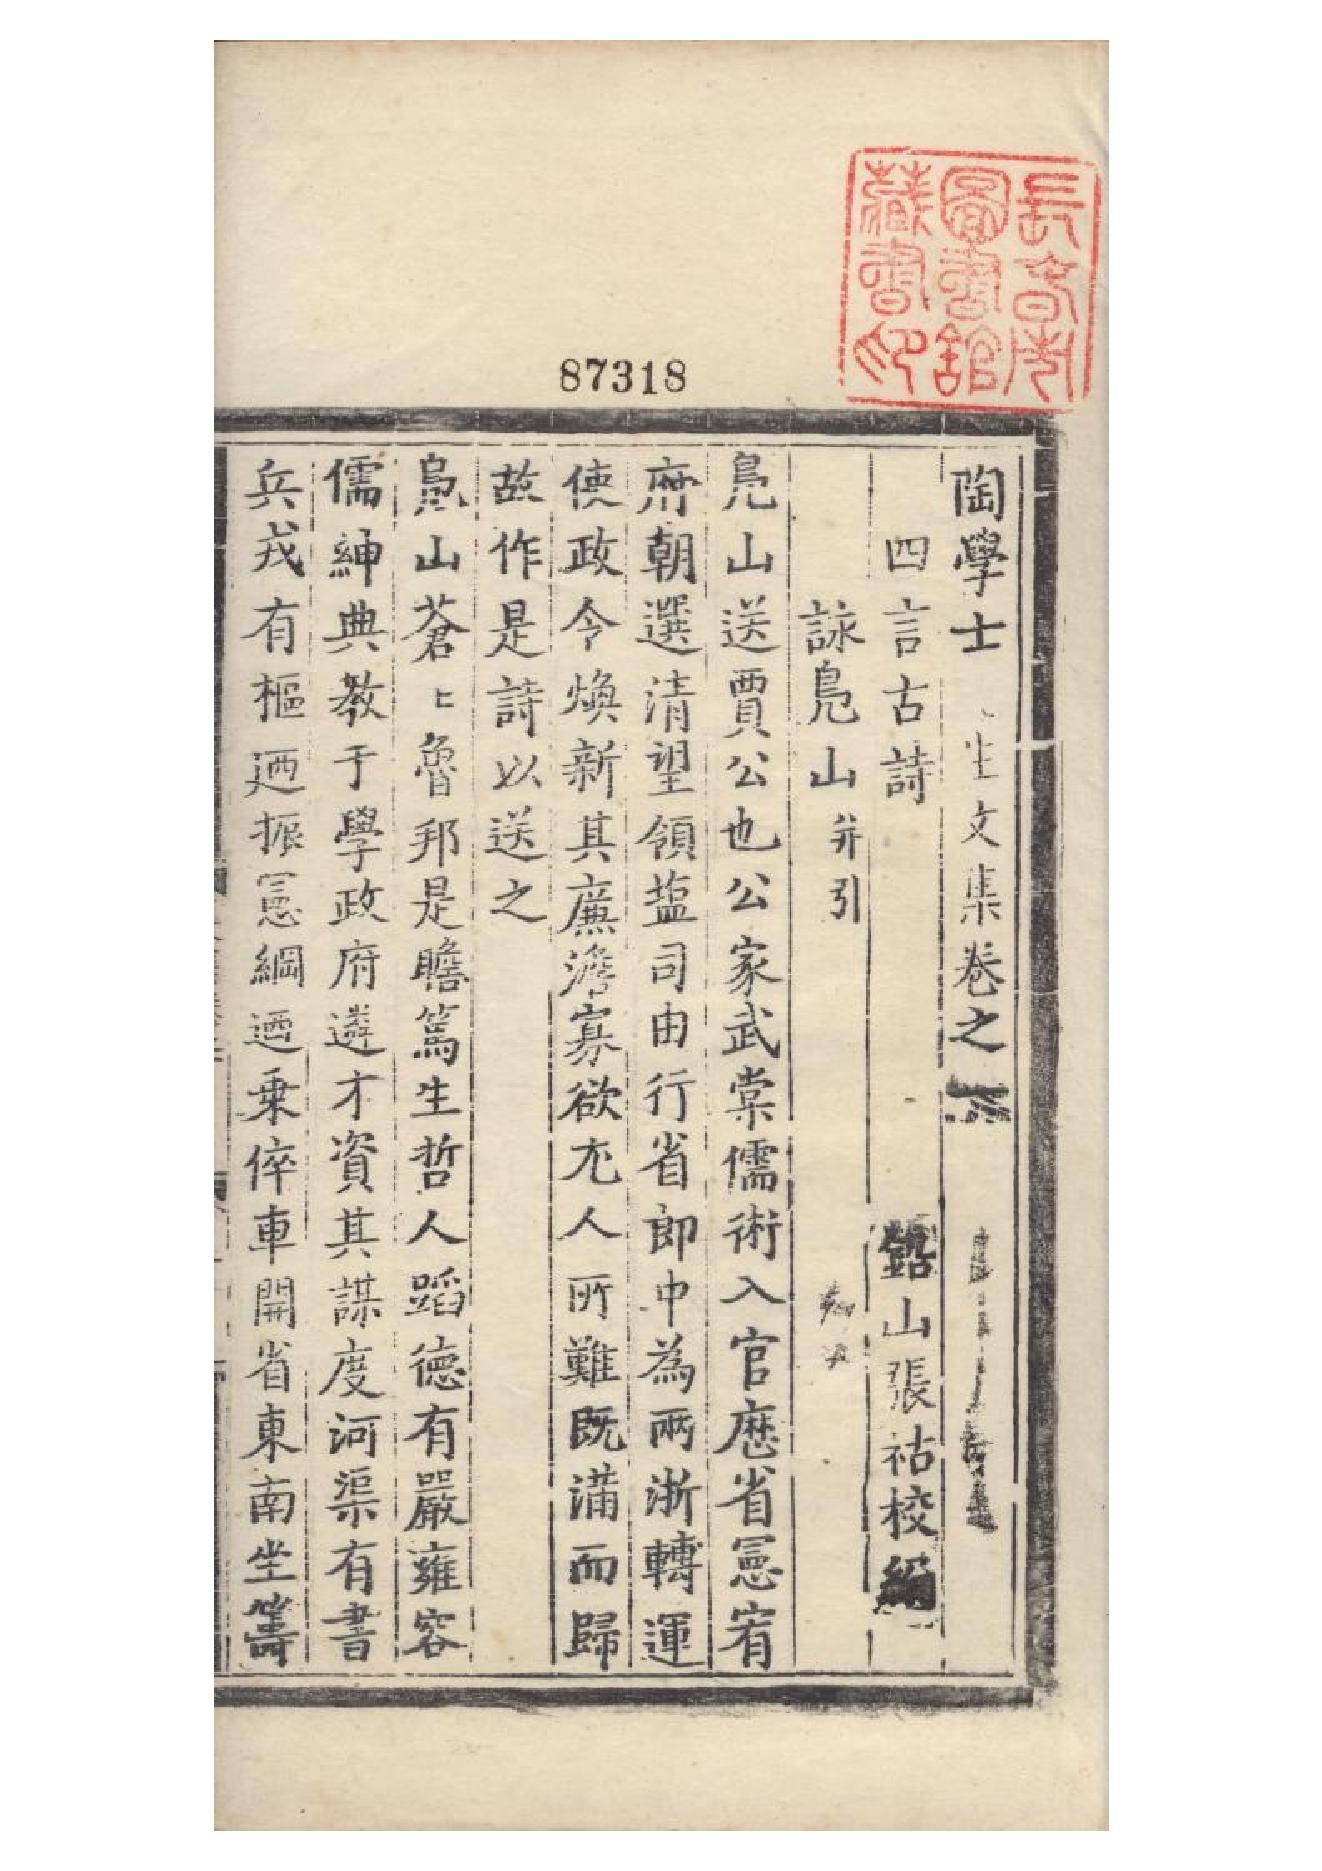 長春市
圖書館
藏書印
87318
陶學士 生文集卷之
四言古詩 山張祜校編
詠鳧山并引
鳧山送賈公也公家武棠儒術入官歷省憲宥
府朝選清望領塩司由行省郎中為兩浙轉運
使政令煥新其廉澹寡欲尤人所難既滿而歸
故作是詩以送之
鳧山蒼〻魯邦是瞻篤生哲人蹈德有嚴雍容
儒紳典教于學政府遴才資其謀度河渠有書
兵戎有樞迺振憲綱迺乗倅車開省東南坐籌